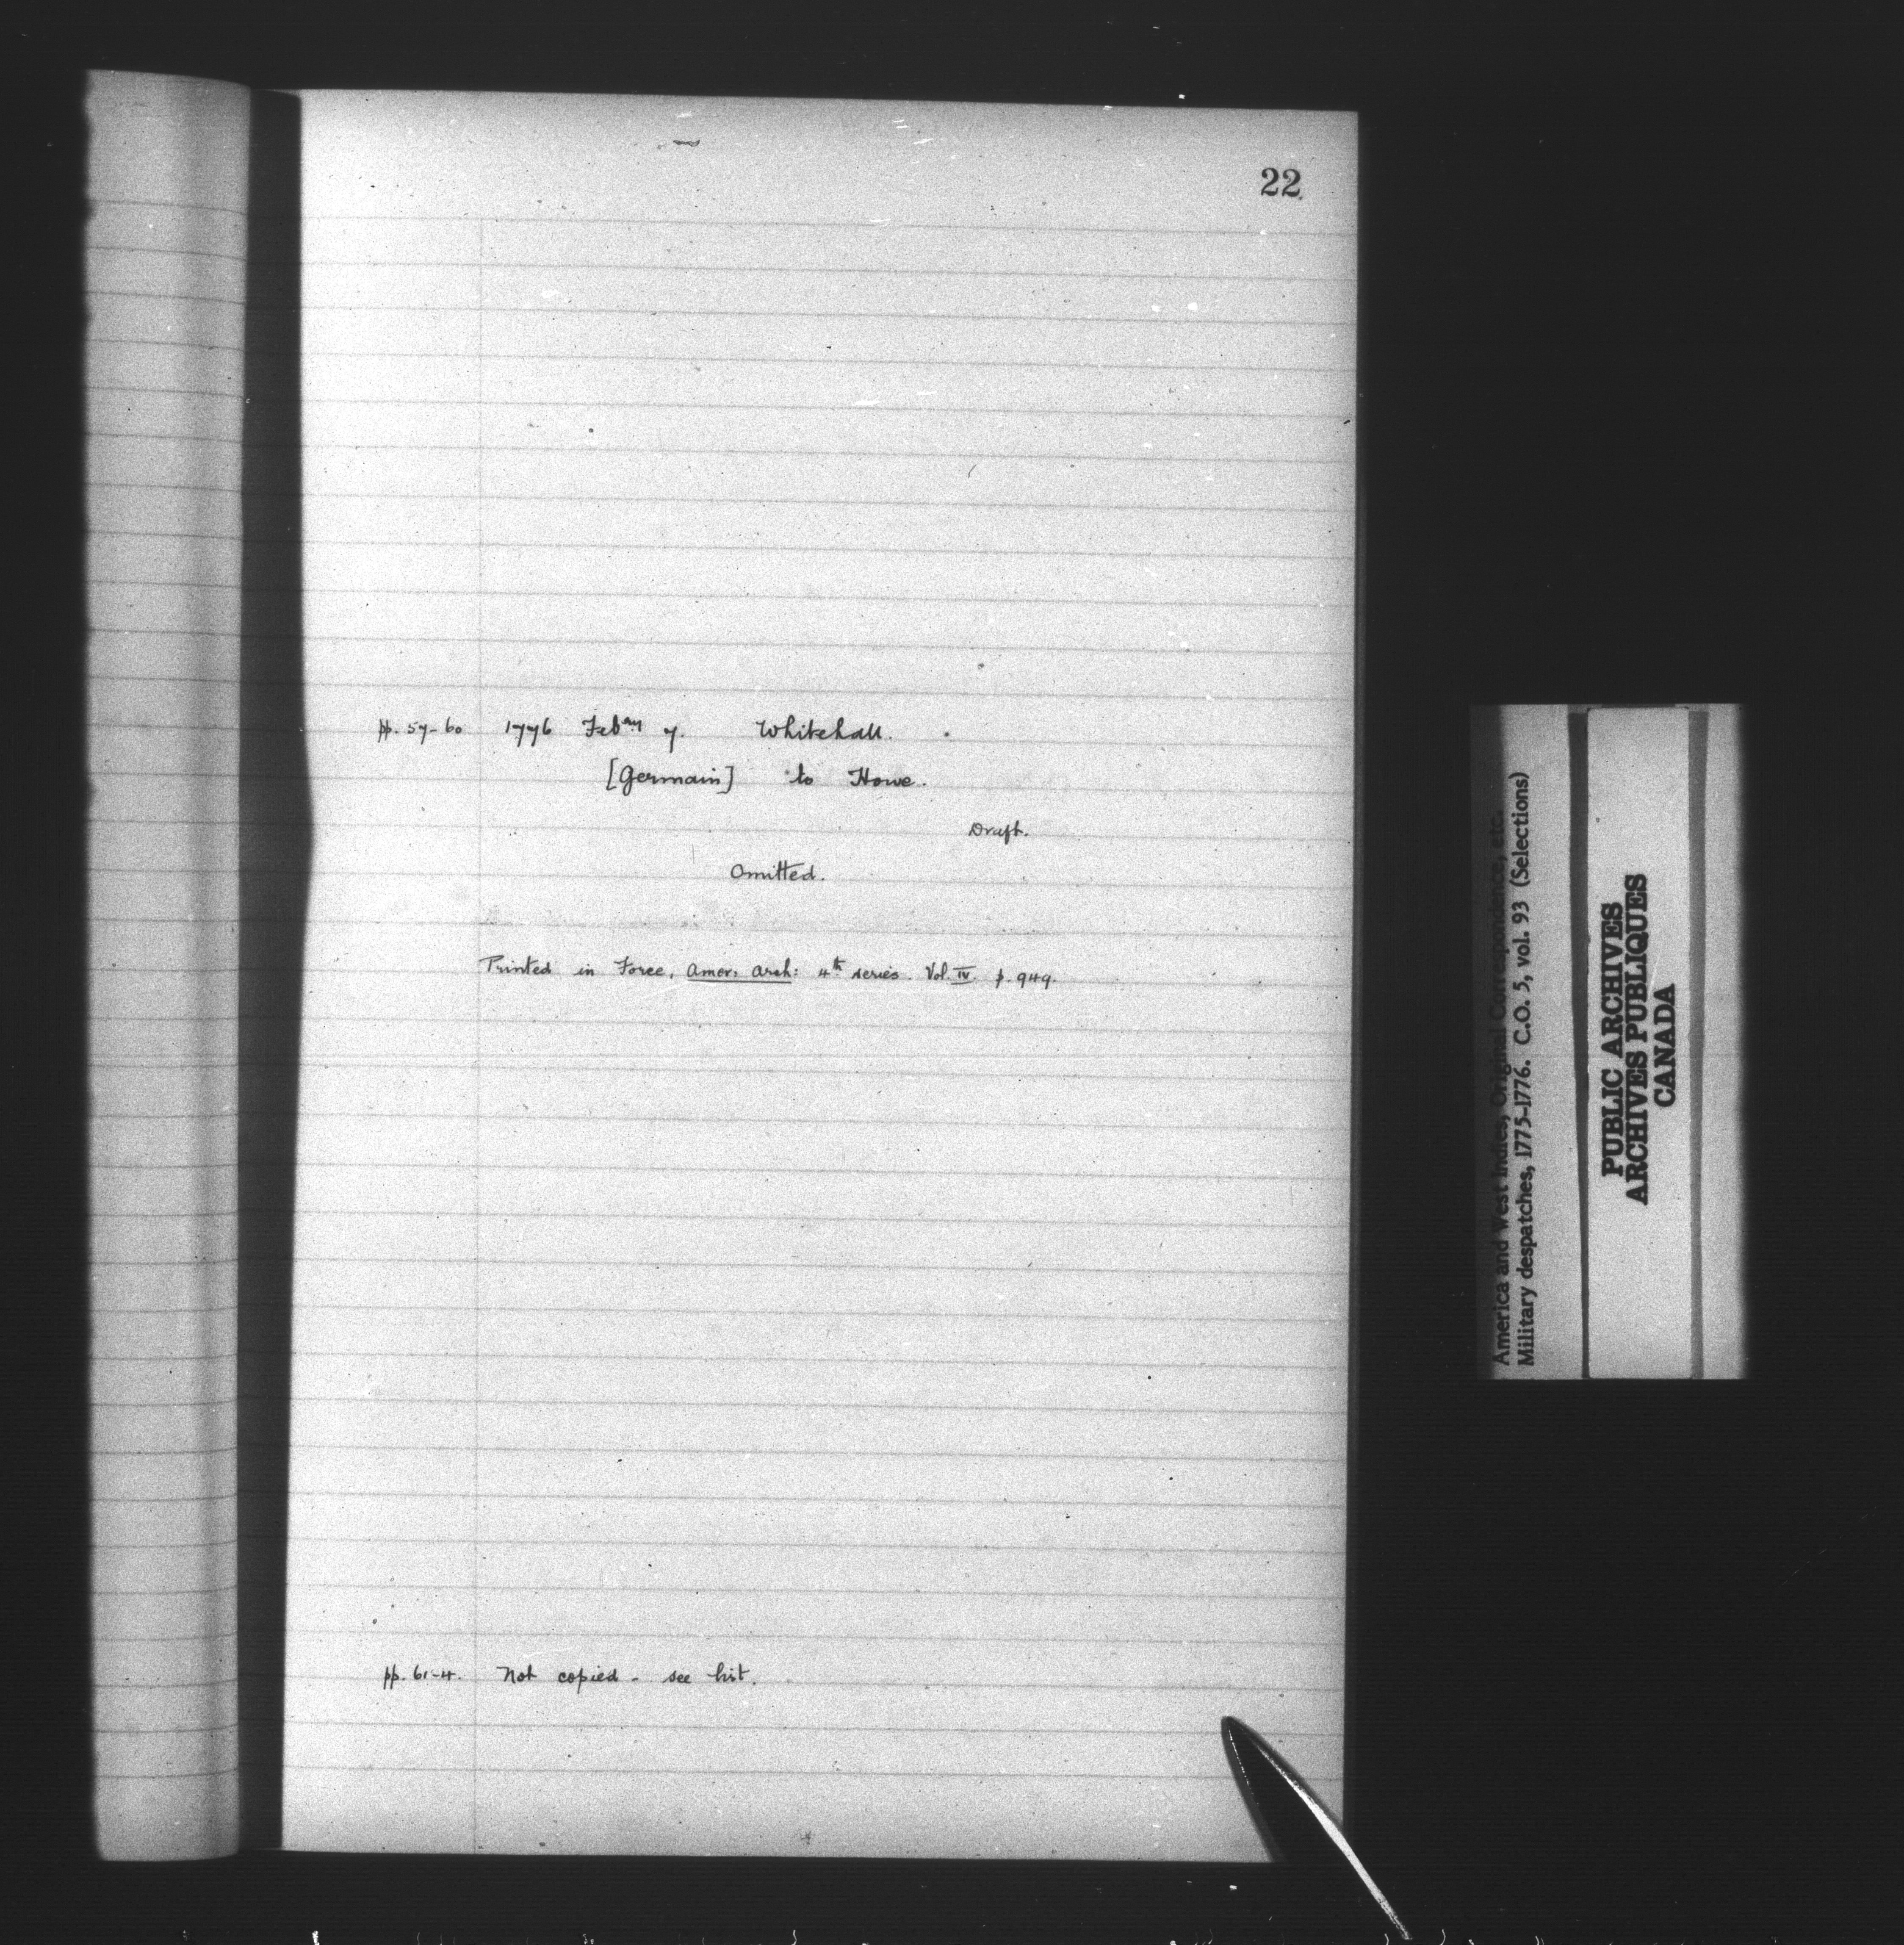 22
pp. 57-60 1776 Feb.ary 7. Whitehall.
[Germain] to Howe.
Draft.
Omitted.
Printed in Force, Amer: Arch: 4th series. Vol. IV. p. 949.
pp. 61-4. Not copied - see list.
America and West Indies, Original Correspondence, etc.
Military despatches, 1775-1776. C.O. 5, vol. 93 (Selections)
PUBLIC ARCHIVES
ARCHIVES PUBLIQUES
CANADA